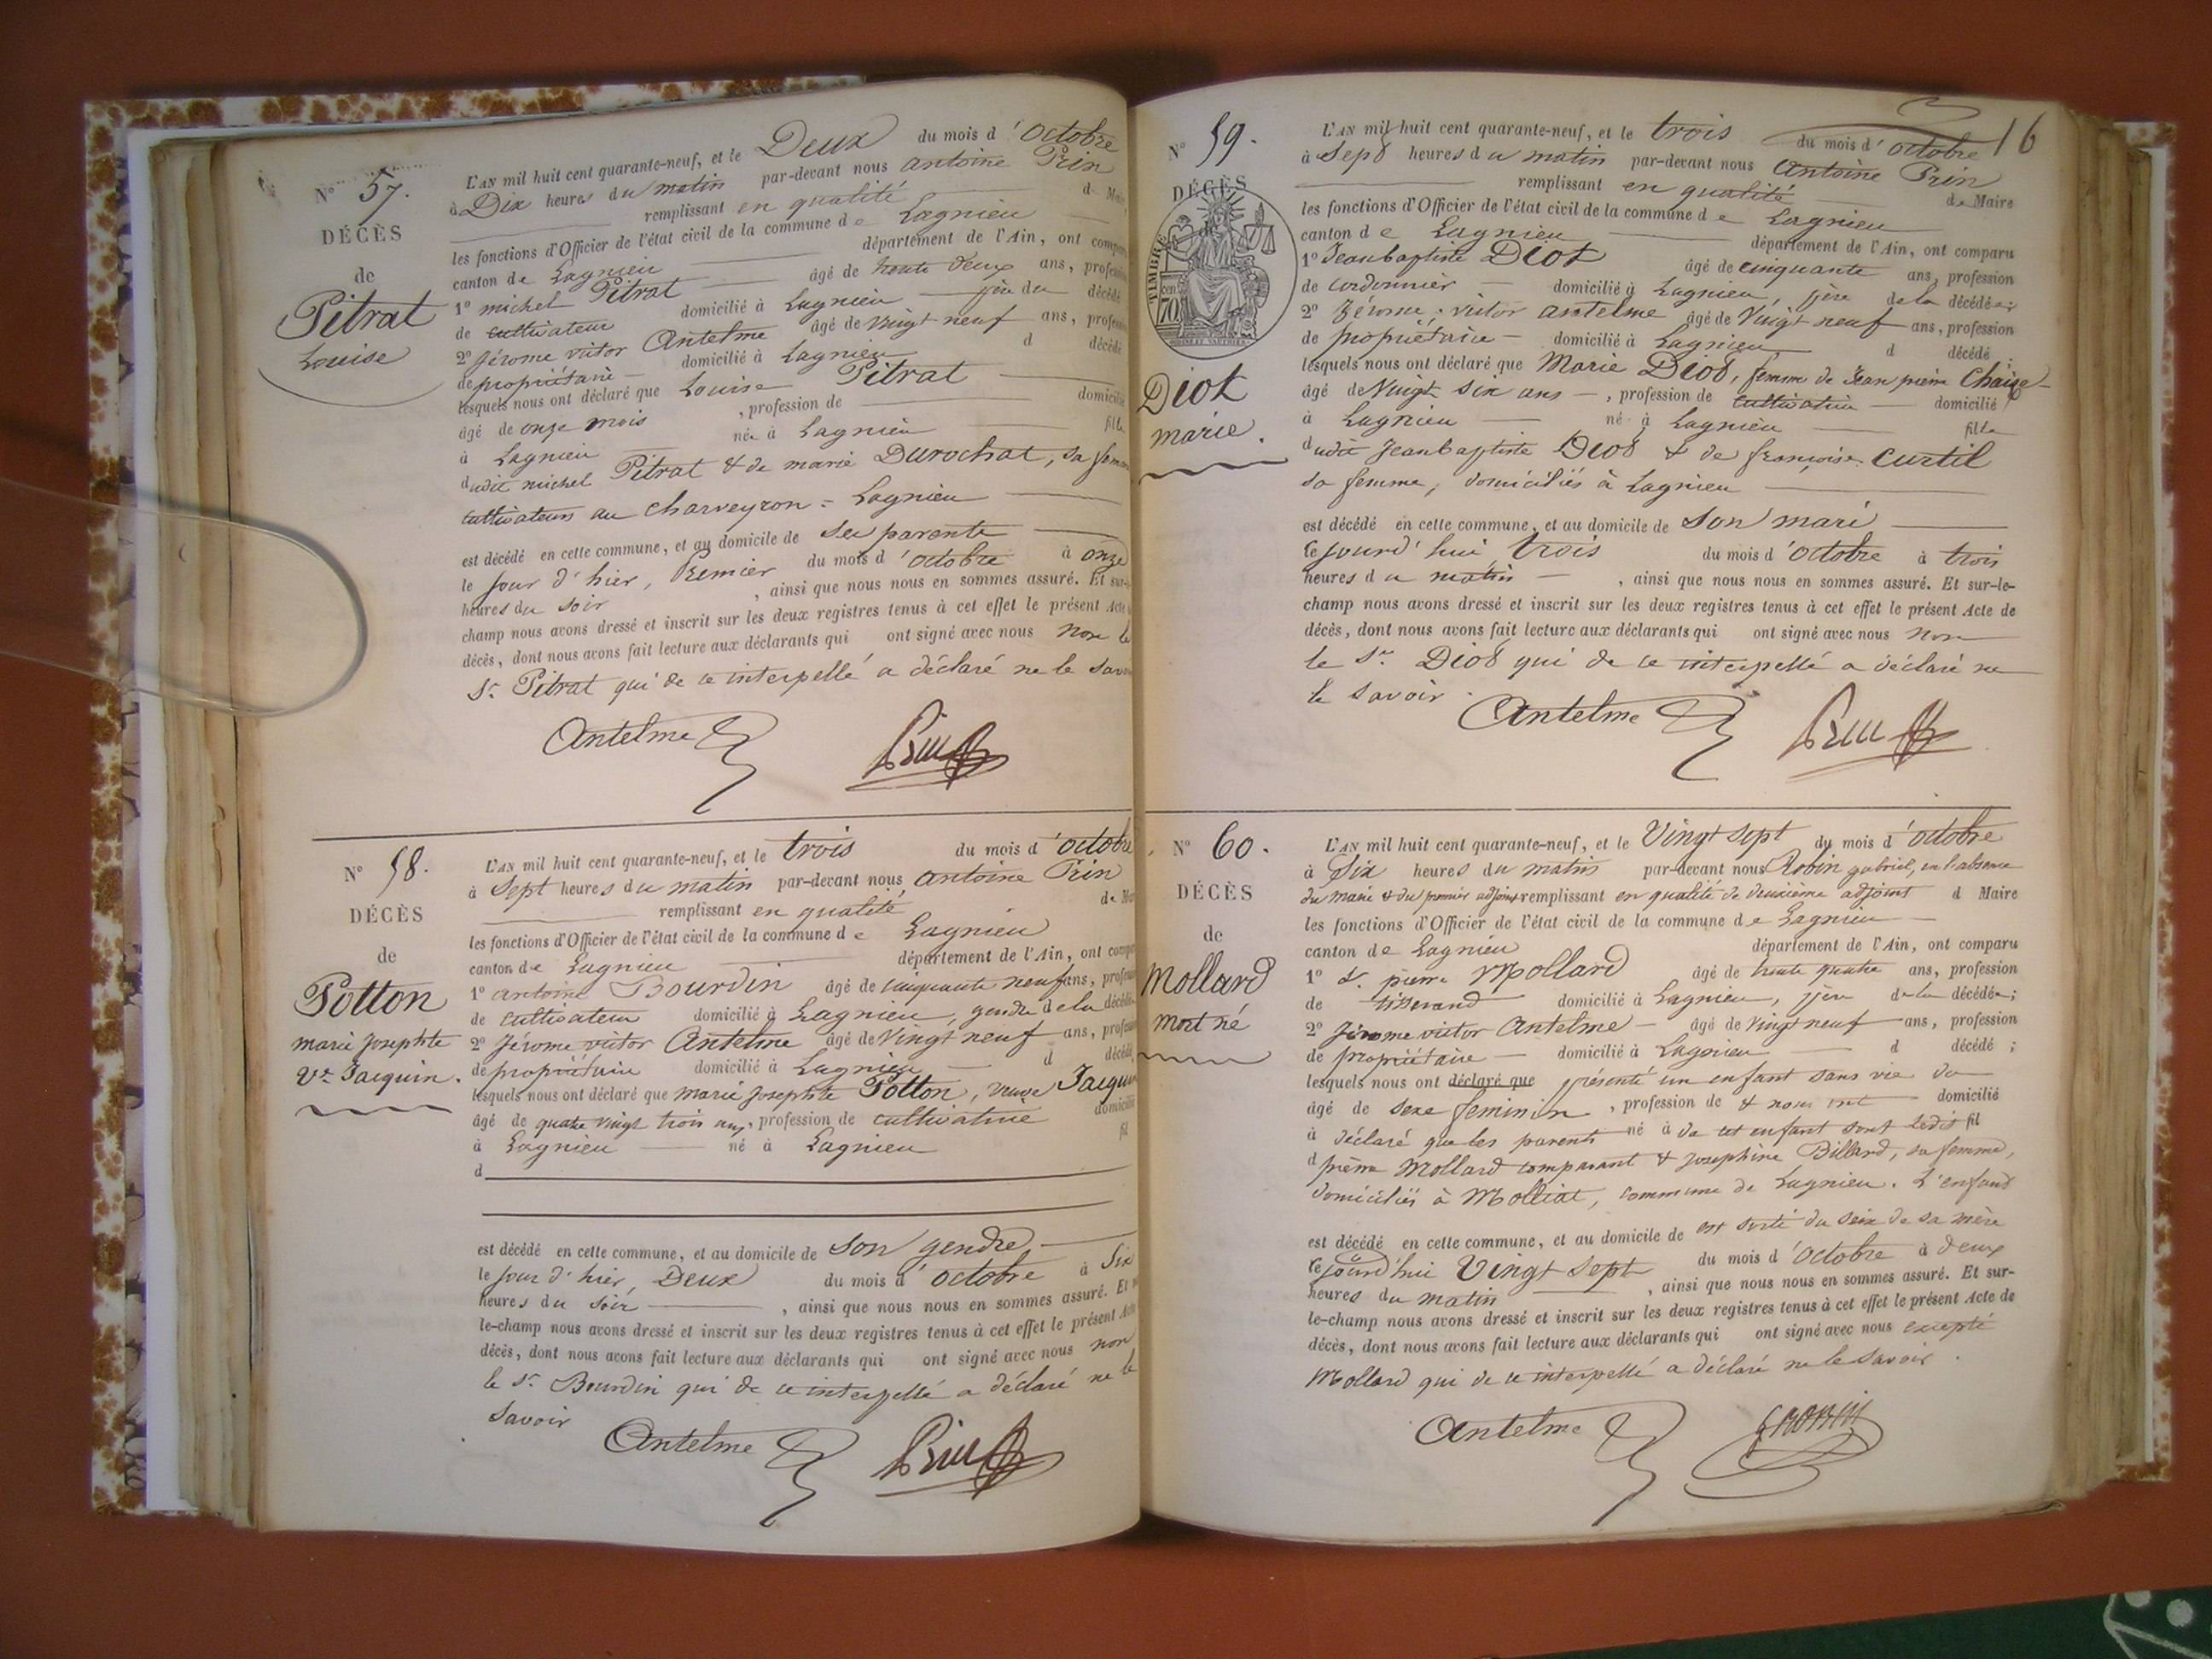 N° 57.
DÉCÈS
de
Pitrat
Louise
L'AN mil huit cent quarante-neuf, et le Deux du mois d'octobre
à Dix heures du matin par-devant nous antoine Prin
remplissant en qualité de Maire
les fonctions d'Officier de l'état civil de la commune de Lagnieu
canton de Lagnieu département de l'Ain, ont comparu
1° michel Pitrat âgé de trente deux ans, profession
de cultivateur domicilié à Lagnieu père du décédé
2° Jérome victor Antelme âgé de vingt neuf ans, profession
de propriétaire domicilié à Lagnieu d décédé
lesquels nous ont déclaré que Louise Pitrat
âgé de onze mois, profession de domicilié
à Lagnieu née à Lagnieu fille
dudit michel Pitrat & de marie Durochat, sa femme
cultivateurs au charveyron = Lagnieu
est décédé en cette commune, et au domicile de ses parents
le jour d'hier, Premier du mois d'octobre à onze
heures du soir, ainsi que nous nous en sommes assuré. Et sur-le-
champ nous avons dressé et inscrit sur les deux registres tenus à cet effet le présent Acte de
décès, dont nous avons fait lecture aux déclarants qui ont signé avec nous non le
Sr. Pitrat qui de ce interpellé a déclaré ne le savoir
Antelme Prin
N° 58.
DÉCÈS
de
Potton
marie Josephte
Ve. Jacquin.
L'AN mil huit cent quarante-neuf, et le trois du mois d'octobre
à Sept heures du matin par-devant nous antoine Prin
remplissant en qualité de Maire
les fonctions d'Officier de l'état civil de la commune de Lagnieu
canton de Lagnieu département de l'Ain, ont comparu
1° antoine Bourdin âgé de cinquante neuf ans, profession
de cultivateur domicilié à Lagnieu, gendre de la décédée
2° Jérome victor Antelme âgé de vingt neuf ans, profession
de propriétaire domicilié à Lagnieu d décédé
lesquels nous ont déclaré que marie Josephte Potton, veuve Jacquin
âgé de quatre vingt trois ans, profession de cultivatrice domicilié
à Lagnieu né à Lagnieu fil
d
est décédé en cette commune, et au domicile de son gendre
le jour d'hier, Deux du mois d'octobre à Six
heures du soir, ainsi que nous nous en sommes assuré. Et sur-
le-champ nous avons dressé et inscrit sur les deux registres tenus à cet effet le présent Acte
décès, dont nous avons fait lecture aux déclarants qui ont signé avec nous non
le Sr. Bourdin qui de ce interpellé a déclaré ne le
savoir
Antelme Prin
16
N° 59.
DÉCÈS
TIMBRE
70
Diot
marie.
L'AN mil huit cent quarante-neuf, et le trois du mois d'octobre
à Sept heures du matin par-devant nous Antoine Prin
remplissant en qualité de Maire
les fonctions d'Officier de l'état civil de la commune de Lagnieu
canton de Lagnieu département de l'Ain, ont comparu
1° Jeanbaptiste Diot âgé de cinquante ans, profession
de cordonnier domicilié à Lagnieu, père de la décédée;
2° Jérome victor antelme âgé de vingt neuf ans, profession
de propriétaire domicilié à Lagnieu d décédé;
lesquels nous ont déclaré que Marie Diot, femme de Jean pierre Chaize
âgé de Vingt Six ans, profession de cultivatrice domicilié
à Lagnieu né à Lagnieu fille
dudit Jeanbaptiste Diot & de françoise Curtil
sa femme, domiciliés à Lagnieu
est décédé en cette commune, et au domicile de Son mari
cejourd'hui trois du mois d'octobre à trois
heures du matin, ainsi que nous nous en sommes assuré. Et sur-le-
champ nous avons dressé et inscrit sur les deux registres tenus à cet effet le présent Acte de
décès, dont nous avons fait lecture aux déclarants qui ont signé avec nous non
le Sr. Diot qui de ce interpellé a déclaré ne
le savoir.
Antelme Prin
N° 60.
DÉCÈS
de
Mollard
Mort né
L'AN mil huit cent quarante-neuf, et le Vingt sept du mois d'octobre
à Six heures du matin par-devant nous Robin gabriel, en l'absence
du maire & du premier adjoint remplissant en qualité de deuxième adjoint d Maire
les fonctions d'Officier de l'état civil de la commune de Lagnieu
canton de Lagnieu département de l'Ain, ont comparu
1° Sr. pierre Mollard âgé de trente quatre ans, profession
de tisserand domicilié à Lagnieu, père de la décédée;
2° Jérome victor Antelme âgé de vingt neuf ans, profession
de propriétaire domicilié à Lagnieu d décédé;
lesquels nous ont déclaré que présenté un enfant sans vie du
âgé de sexe feminin, profession de & nous ont domicilié
à déclaré que les parents né à de cet enfant sont ledit fil
d pierre Mollard comparant & Josephine Billard, sa femme,
domiciliés à Molliat, commune de Lagnieu. L'enfant
est décédé en cette commune, et au domicile de est sorti du sein de sa mère
cejourd'hui Vingt sept du mois d'octobre à deux
heures du matin, ainsi que nous nous en sommes assuré. Et sur-
le-champ nous avons dressé et inscrit sur les deux registres tenus à cet effet le présent Acte de
décès, dont nous avons fait lecture aux déclarants qui ont signé avec nous excepté
Mollard qui de ce interpellé a déclaré ne le savoir.
Antelme